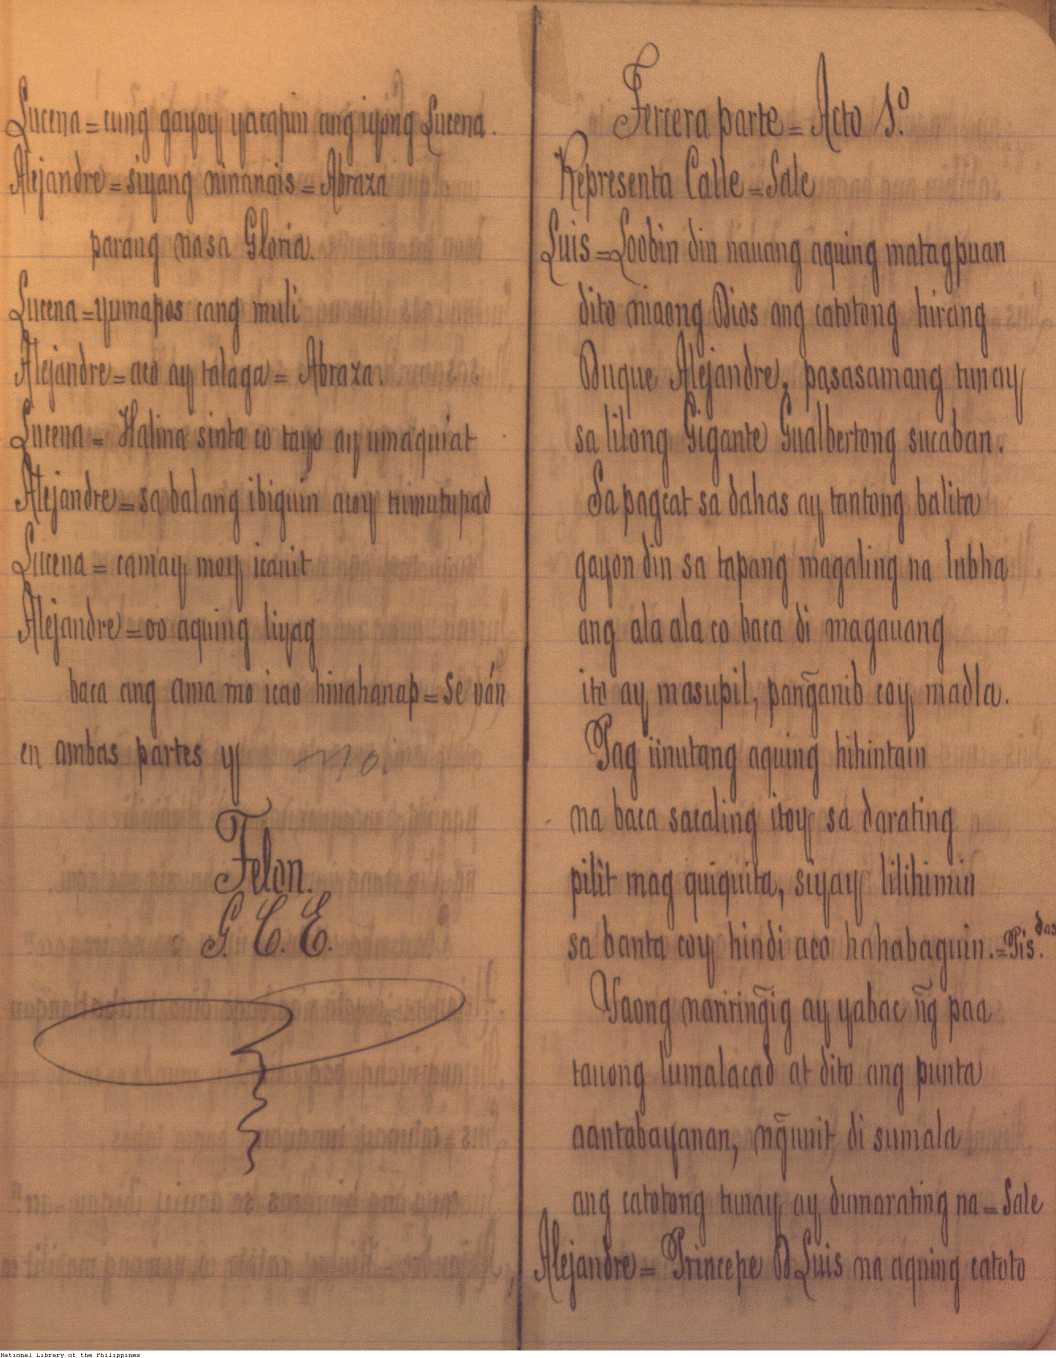 Lucena = cung gayoy yacapin ang iyong Lucena.
Alejandre = siyang ninanais = Abraza
parang nasa Gloria.
Lucena = yumapos cang muli
Alejandre = aco ay talaga = Abraza.
Lucena = Halina sinta co tayo ay umaquiat
Alejandre = sa balang ibiguin acoy tumutupad
Lucena = camay moy icauit
Alejandre = oo aquing liyag
baca ang ama mo icao hinahanap = Se ván
en ambas partes y
Telon.
G. C. E.
Tercera parte = Acto 1.º
Representa Calle = Sale
Luis = Loobin din nauang aquing matagpuan
dito niaong Dios ang catotong hirang
Duque Alejandre, pasasamang tunay
sa lilong Gigante Gualbertong sucaban.
Sa pagcat sa dahas ay tantong balita
gayon din sa tapang magaling na lubha
ang ala ala co baca di magauang
ito ay masupil, pang̃anib coy madla.
Pag iinutang aquing hihintain
na baca sacaling itoy sa darating
pilit mag quiquita, siyay lilihimin
sa banta coy hindi aco hahabaguin. = Pis.das
Yaong naririn͠gig ay yabac n͠g paa
tauong lumalacad at dito ang punta
aantabayanan, n͠gunit di sumala
ang catotong tunay ay dumarating na = Sale
Alejandre = Principe D Luis na aquing catoto
National Library of the Philippines